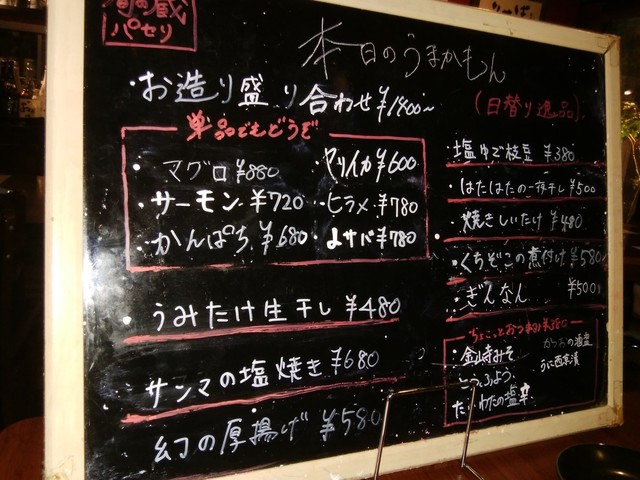 旬の蔵
パセリ
本日のうまかもん
・お造り盛り合わせ ¥1800~
(日替り逸品)
単品でもどうぞ
・マグロ ¥880
・ヤリイカ ¥600
・サーモン ¥720
・ヒラメ ¥780
・かんぱち ¥680
・〆サバ ¥780
・うみたけ生干し ¥480
・サンマの塩焼き ¥680
・幻の厚揚げ ¥580
・塩ゆで枝豆 ¥380
・はたはたの一夜干し ¥500
・焼きしいたけ ¥480
・くちぞこの煮付け ¥580
・ぎんなん ¥500
ちょこっとおつまみ ¥380
・金山寺みそ
かつおの酒盗
うに西京漬
とうふよう
たいわたの塩辛